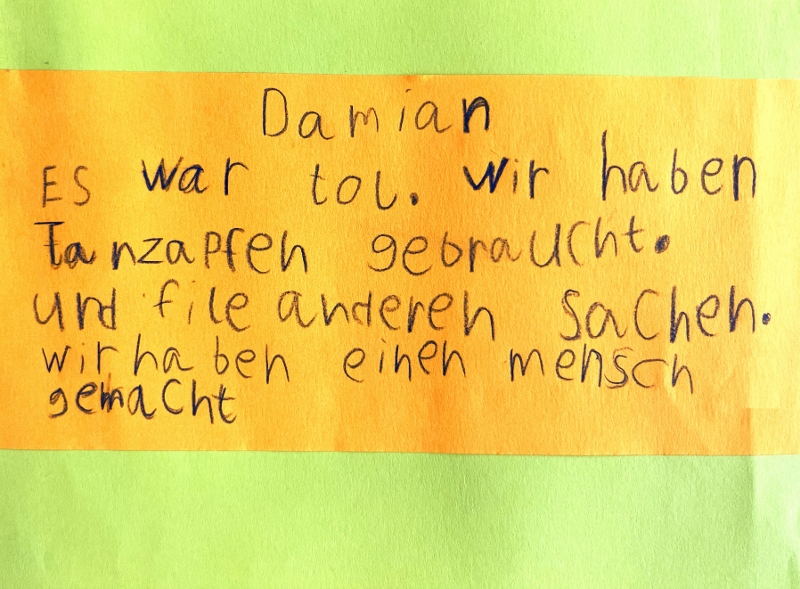 Damian
ES war tol. wir haben
Tanzapfen gebraucht.
und file anderen Sachen.
wir haben einen mensch
gemacht